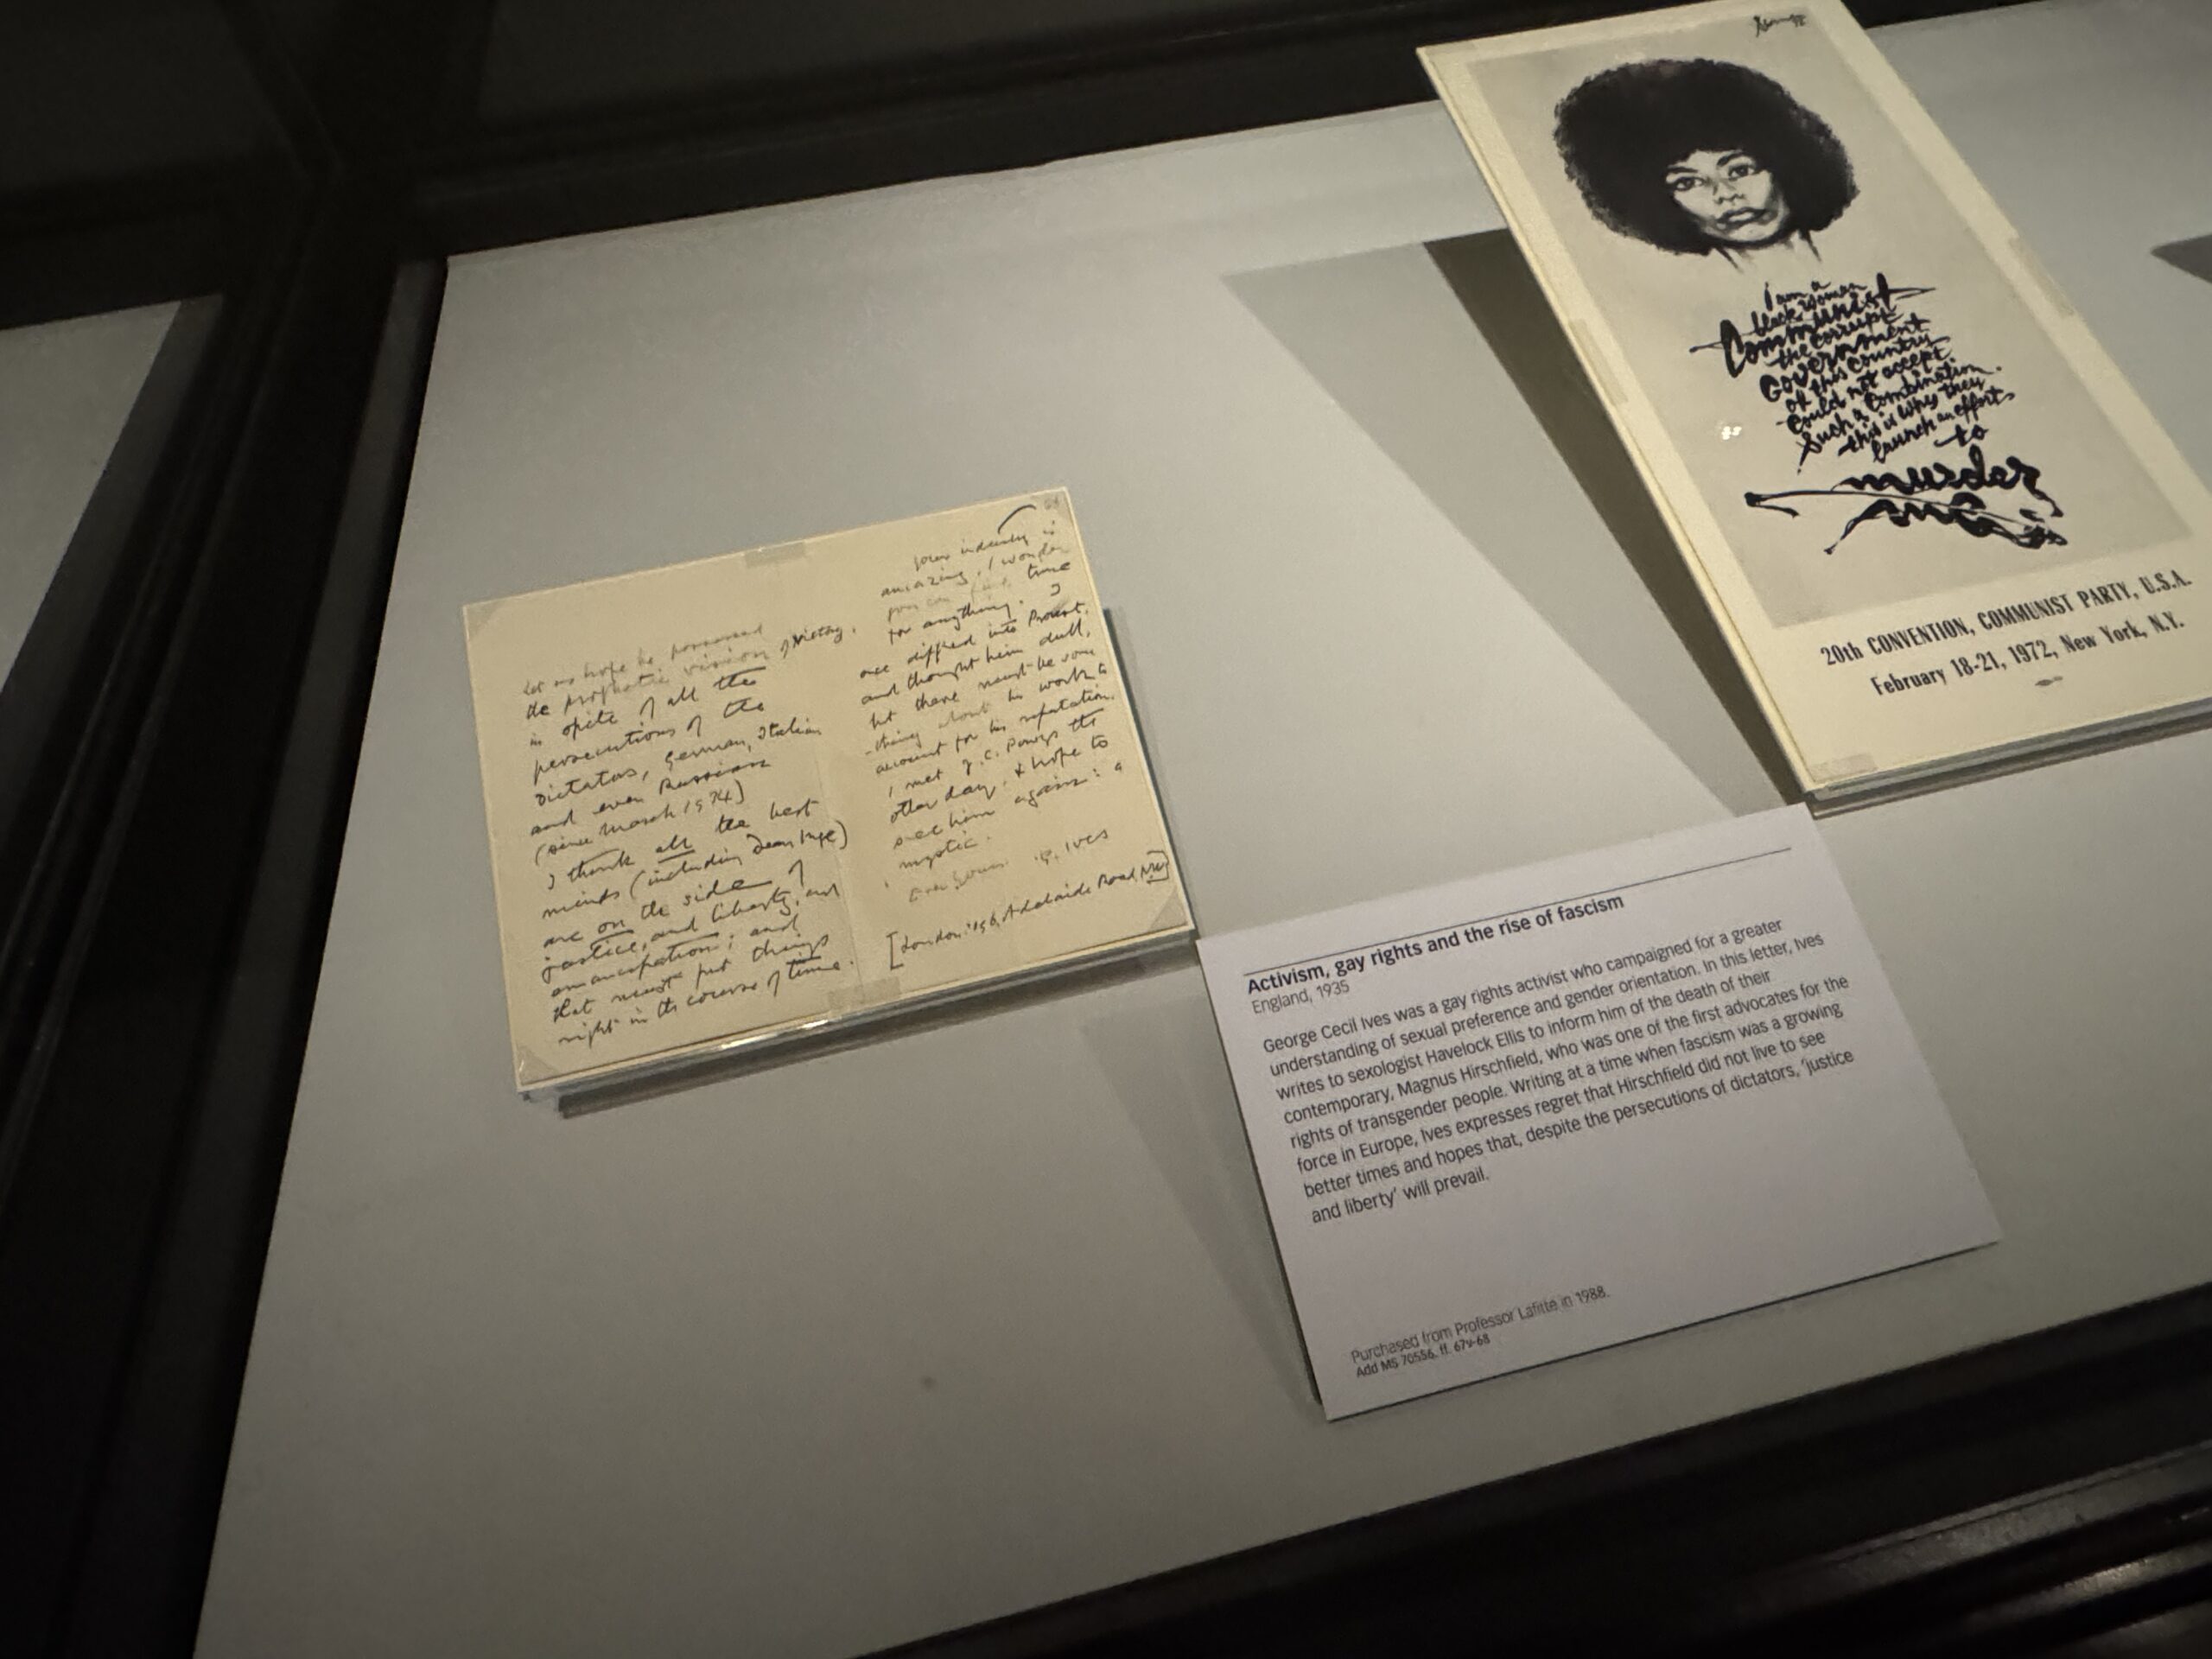 let us hope he possessed
the prophetic vision of victory,
in spite of all the
persecutions of the
Dictators, German, Italian
and even Russian
(since March 1934)
I think all the best
minds (including Dean Inge)
are on the side of
justice, and liberty, and
emancipation; and
that must put things
right in the course of time.
your industry is
amazing, I wonder
you can find time
for anything. I
once dipped into Proust,
and thought him dull,
but there must be some
-thing about his work to
account for his reputation.
I met J. C. Powys the
other day, & hope to
see him again: a
mystic.
Ives
[London: 196, Adelaide Road, NW]
I am a
black woman
Communist
the corrupt
Government
of this country
could not accept
such a combination.
this is why they
launch an effort
to
murder
me
20th CONVENTION, COMMUNIST PARTY, U.S.A.
February 18-21, 1972, New York, N.Y.
Activism, gay rights and the rise of fascism
England, 1935
George Cecil Ives was a gay rights activist who campaigned for a greater
understanding of sexual preference and gender orientation. In this letter, Ives
writes to sexologist Havelock Ellis to inform him of the death of their
contemporary, Magnus Hirschfield, who was one of the first advocates for the
rights of transgender people. Writing at a time when fascism was a growing
force in Europe, Ives expresses regret that Hirschfield did not live to see
better times and hopes that, despite the persecutions of dictators, 'justice
and liberty' will prevail.
Purchased from Professor Lafitte in 1988.
Add MS 70556, ff. 67v-68